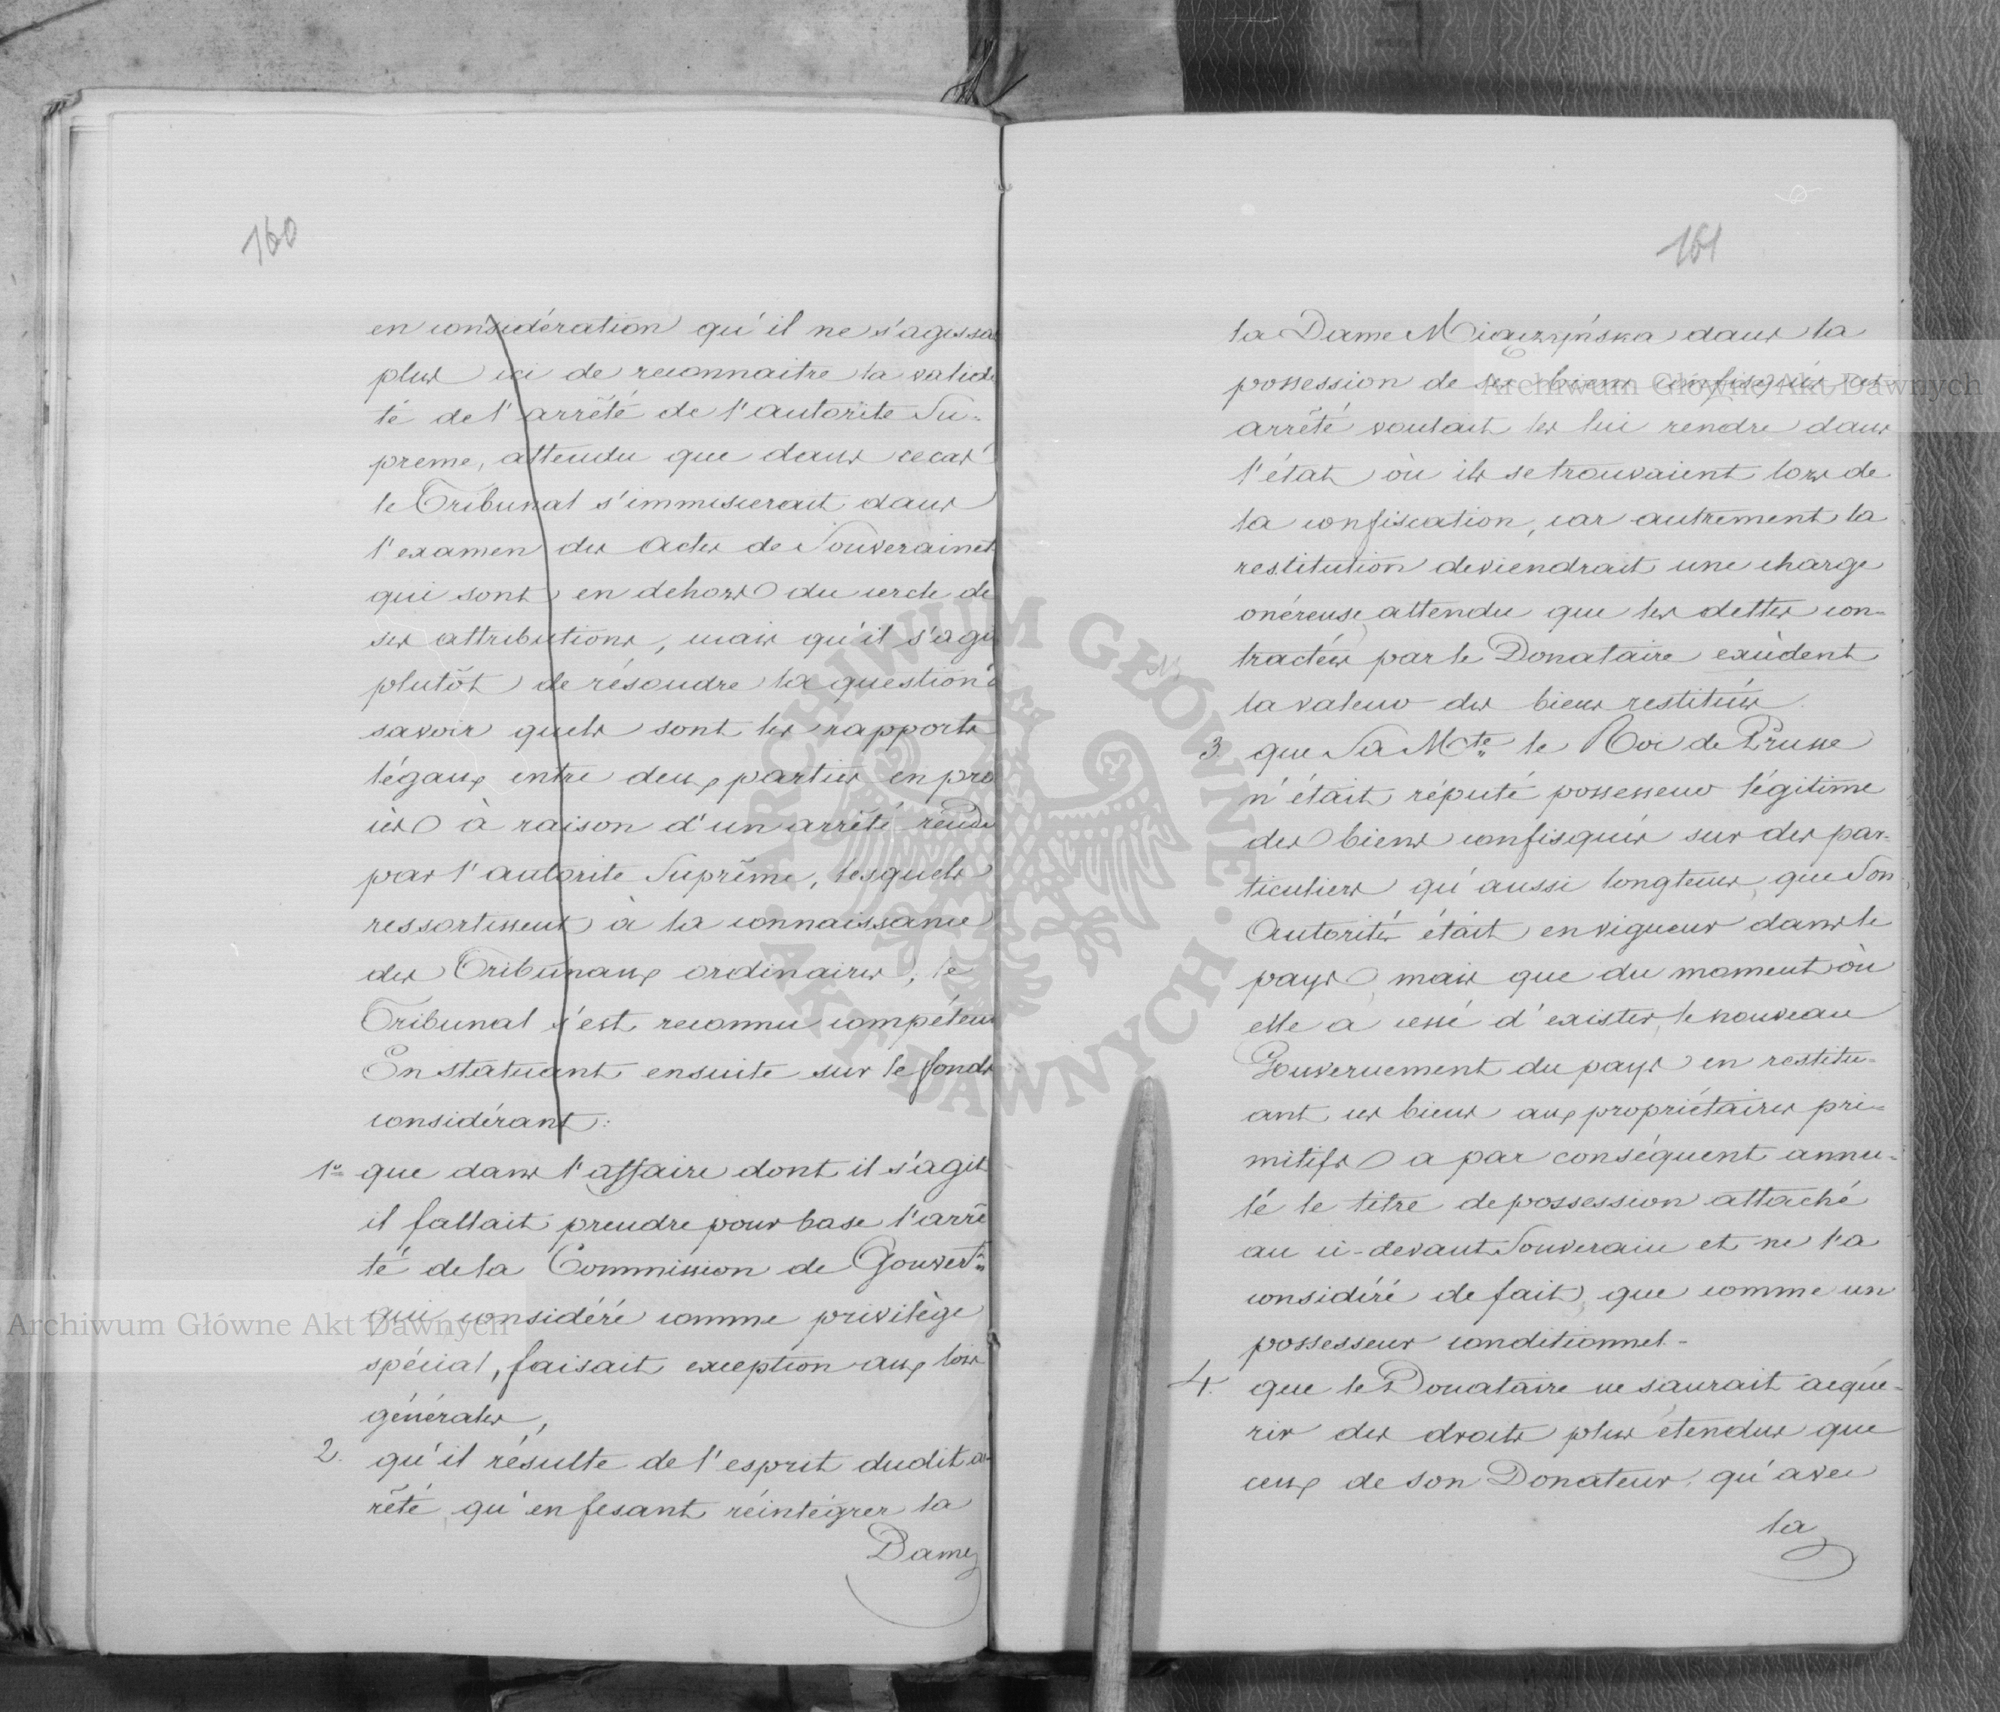 160
en considération qu'il ne s'agissa
plus ici de reconnaitre la valide
té de l'arrêté de l'autorité Su-
preme, attendu que dans ce cas
le Tribunal s'immiscerait dans
l'examen des Actes de Souverainet
qui sont en dehors du cercle de
ses attributions, mais qu'il s'agi
plutôt de résoudre la question à
savoir quels sont les rapports
légaux entre deux parties en pro
cès à raison d'un arrêté rendu
par l'autorite Suprême, lesquels
ressortissent à la connaissance
des Tribunaux ordinaires, le
Tribunal s'est reconnu compétent
En statuant ensuite sur le fonds
considérant:
1º que dans l'affaire dont il s'agit
il fallait prendre pour base l'arrê
té de la Commission de Gouvert
qui considéré comme privilège
spécial, faisait exception aux lois
générales,
2. qu'il résulte de l'esprit dudit ar
rêté qu'en fesant réintégrer la
Dame
161
la Dame Miączyńska dans la
possession de ses biens confisqués cet
arrêté voulait les lui rendre dans
l'état où ils se trouvaient lors de
la confiscation, car autrement la
restitution deviendrait une charge
onéreuse, attendu que les dettes con-
tractées par le Donataire excèdent
la valeur des biens restitués.
3 que Sa Mte le Roi de Prusse
n'était réputé possesseur légitime
des biens confisqués sur des par-
ticuliers qu'aussi longtems que Son
Autorité était en vigueur dans le
pays, mais que du moment où
elle a cessé d'exister le nouveau
Gouvernement du pays en restitu-
ant ces biens aux propriétaires pri-
mitifs a par conséquent annu-
lé le titre de possession attaché
au ci-devant Souverain et ne l'a
considéré de fait, que comme un
possesseur conditionnel-
4. que le Donataire ne saurait acqué-
rir des droits plus étendus que
ceux de son Donateur, qu'avec
la
Archiwum Główne Akt Dawnych
Archiwum Główne Akt Dawnych
ARCHIWUM GŁÓWNE
AKT DAWNYCH